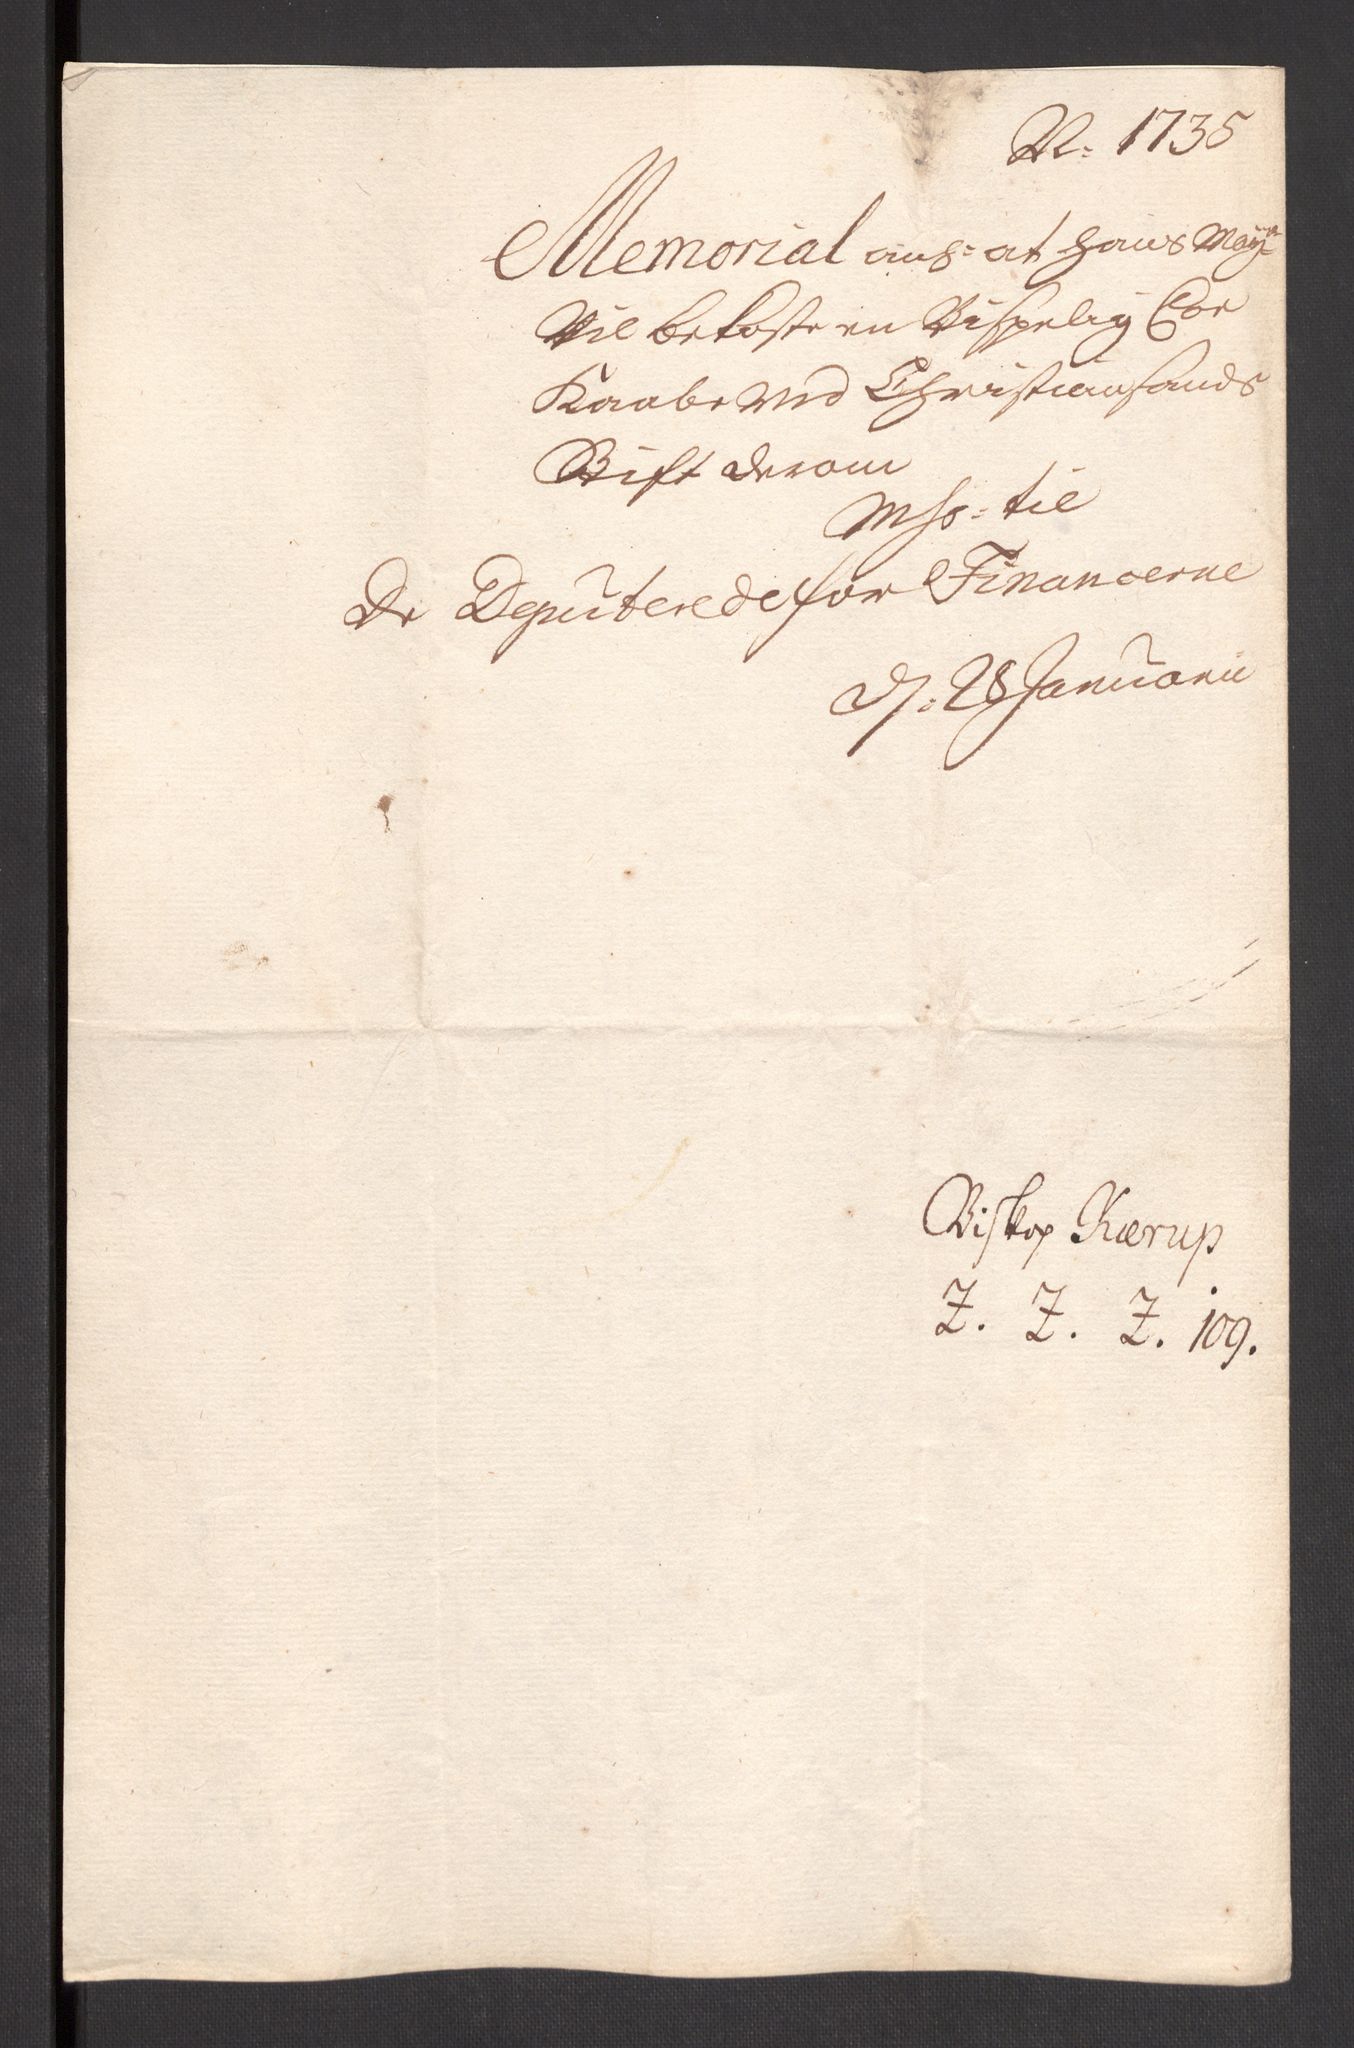 A: 1735
Memorial anh: at hans May:
Vil bekoste en Bispelig Cor
Kaabe ved Christiansands
Stift derom
Msc: til
De Deputerede for Financerne
d: 28 Januarii
Biskop Kærup
Z. Z. Z. 109.